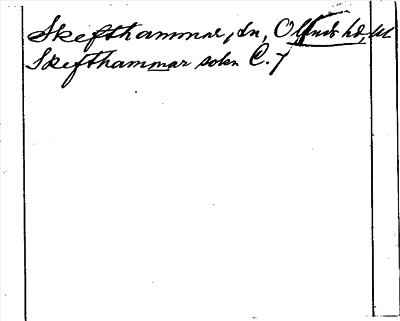 Skefthammar, sn, Olands hd, Ul
Skefthammar sokn C. 7